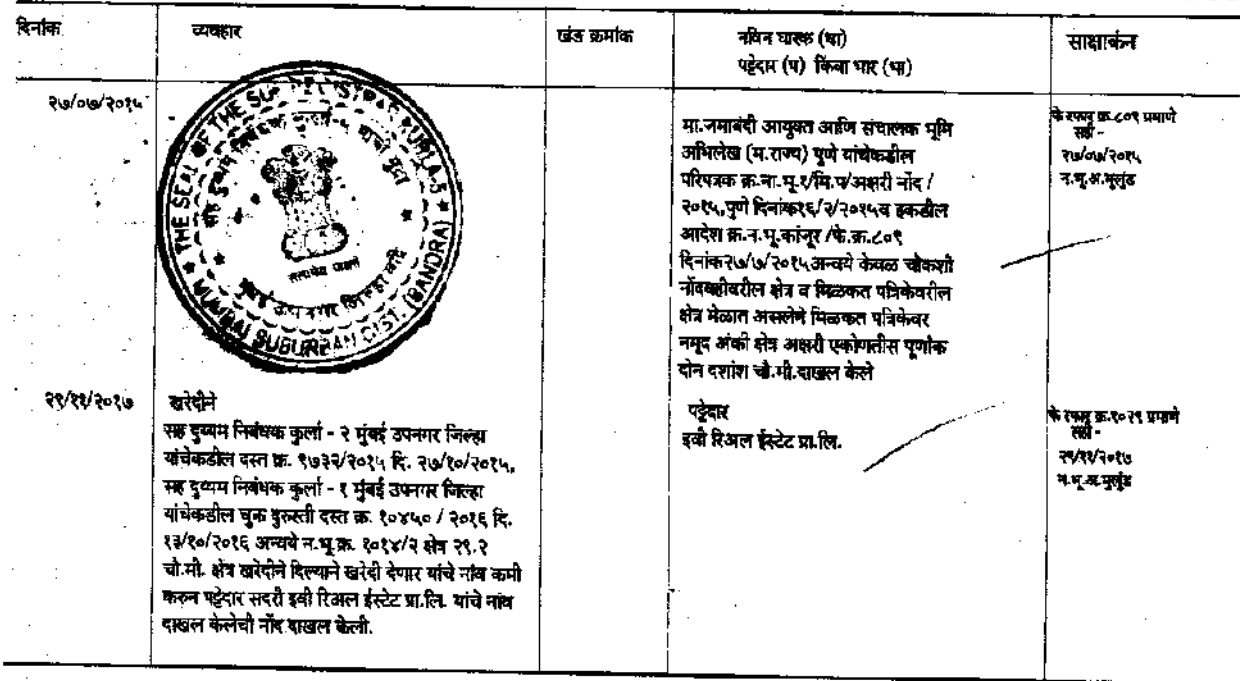 दिनांक
व्यवहार
खंड क्रमांक
नविन धारक (धा)
पट्टेदार (प) किंवा भार (भा)
साक्षांकन
२७/०७/२०१५
THE SEAL OF THE SUB REGISTRAR KURLA-5
MUMBAI SUBURBAN DIST. (BANDRA)
सत्यमेव जयते
मा.जमाबंदी आयुक्त आणि संचालक भूमि
अभिलेख (म.राज्य) पुणे यांचेकडील
परिपत्रक क्र.ना.भू.१/मि.प/अक्षरी नोंद /
२०१५,पुणे दिनांक१६/२/२०१५व इकडील
आदेश क्र.न.भू.कांजूर /फे.क्र.८०९
दिनांक२७/७/२०१५अन्वये केवळ चौकशी
नोंदवहीवरील क्षेत्र व मिळकत पत्रिकेवरील
क्षेत्र मेळात असलेने मिळकत पत्रिकेवर
नमूद अंकी क्षेत्र अक्षरी एकोणतीस पूर्णांक
दोन दशांश चौ.मी.दाखल केले
फेरफार क्र.८०९ प्रमाणे
सही -
२७/०७/२०१५
न.भू.अ.मुलुंड
२९/११/२०१७
खरेदीने
सह दुय्यम निबंधक कुर्ला - २ मुंबई उपनगर जिल्हा
यांचेकडील दस्त क्र. ९७३२/२०१५ दि. २७/१०/२०१५,
सह दुय्यम निबंधक कुर्ला - १ मुंबई उपनगर जिल्हा
यांचेकडील चुक दुरुस्ती दस्त क्र. १०४५० / २०१६ दि.
१३/१०/२०१६ अन्वये न.भू.क्र. १०१४/२ क्षेत्र २९.२
चौ.मी. क्षेत्र खरेदीने दिल्याने खरेदी देणार यांचे नांव कमी
करुन पट्टेदार सदरी इवी रिअल ईस्टेट प्रा.लि. यांचे नांव
दाखल केलेची नोंद दाखल केली.
पट्टेदार
इवी रिअल ईस्टेट प्रा.लि.
फेरफार क्र.१०२९ प्रमाणे
सही -
२९/११/२०१७
न.भू.अ.मुलुंड